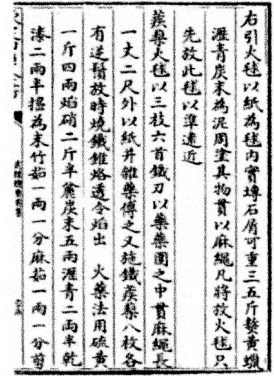 右引火毬以紙為毬內實塼石屑可重三五斤熬黃蠟
瀝青炭末為泥周塗其物貫以麻繩凡將放火毬只
先放此毬以準遠近
蒺藜火毬以三枝六首鐵刃以藥藥團之中貫麻繩長
一丈二尺外以紙并雜藥傅之又施鐵蒺藜八枚各
有逆鬚放時燒鐵錐烙透令焰出 火藥法用硫黃
一斤四兩焰硝二斤半麄炭末五兩瀝青二兩半乾
漆二兩半擣為末竹茹一兩一分麻茹一兩一分剪